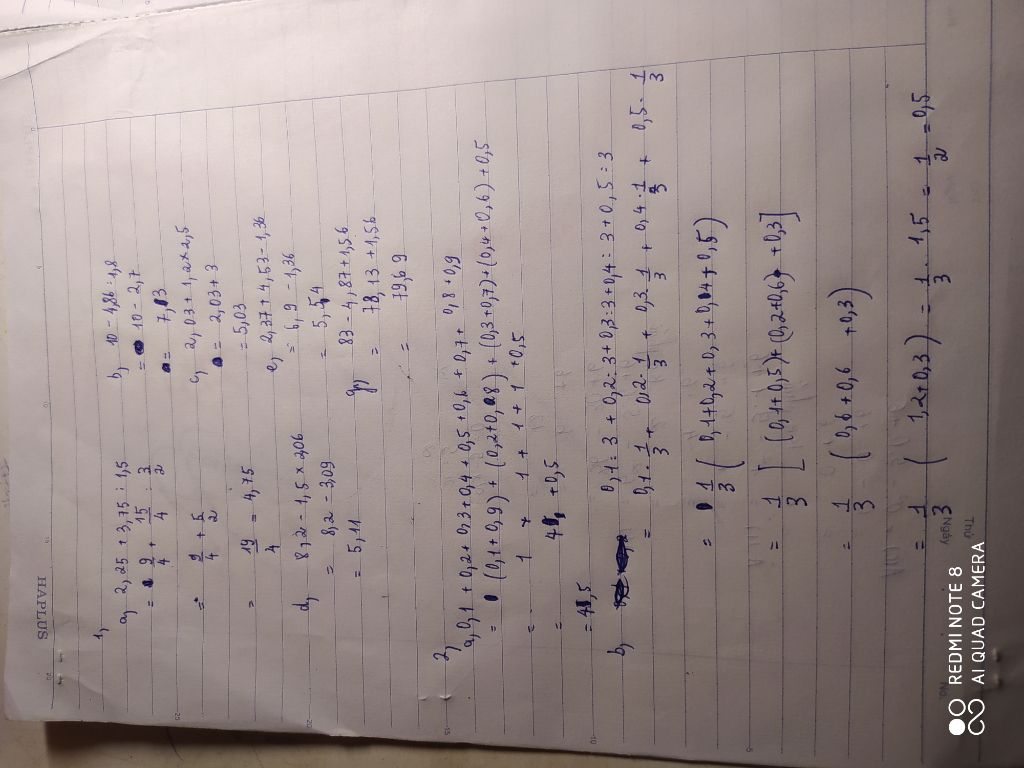 HAPLUS
1,
a, 2,25 + 3,75 : 1,5
= 9/4 + 15/4 : 3/2
= 9/4 + 5/2
= 19/4 = 4,75
d, 8,2 - 1,5 × 2,06
= 8,2 - 3,09
= 5,11
b, 10 - 4,86 : 1,8
= 10 - 2,7
= 7,3
c, 2,03 + 1,2 × 2,5
= 2,03 + 3
= 5,03
e, 2,37 + 4,53 - 1,36
= 6,9 - 1,36
= 5,54
g, 83 - 4,87 + 1,56
= 78,13 + 1,56
= 79,69
2,
a, 0,1 + 0,2 + 0,3 + 0,4 + 0,5 + 0,6 + 0,7 + 0,8 + 0,9
= (0,1 + 0,9) + (0,2 + 0,8) + (0,3 + 0,7) + (0,4 + 0,6) + 0,5
= 1 + 1 + 1 + 1 + 0,5
= 4 + 0,5
= 4,5
b, 0,1 : 3 + 0,2 : 3 + 0,3 : 3 + 0,4 : 3 + 0,5 : 3
= 0,1 . 1/3 + 0,2 . 1/3 + 0,3 . 1/3 + 0,4 . 1/3 + 0,5 . 1/3
= 1/3 (0,1 + 0,2 + 0,3 + 0,4 + 0,5)
= 1/3 [(0,1 + 0,5) + (0,2 + 0,6) + 0,3]
= 1/3 (0,6 + 0,6 + 0,3)
= 1/3 (1,2 + 0,3) = 1/3 . 1,5 = 1/2 = 0,5
Thứ
Ngày
REDMI NOTE 8
AI QUAD CAMERA